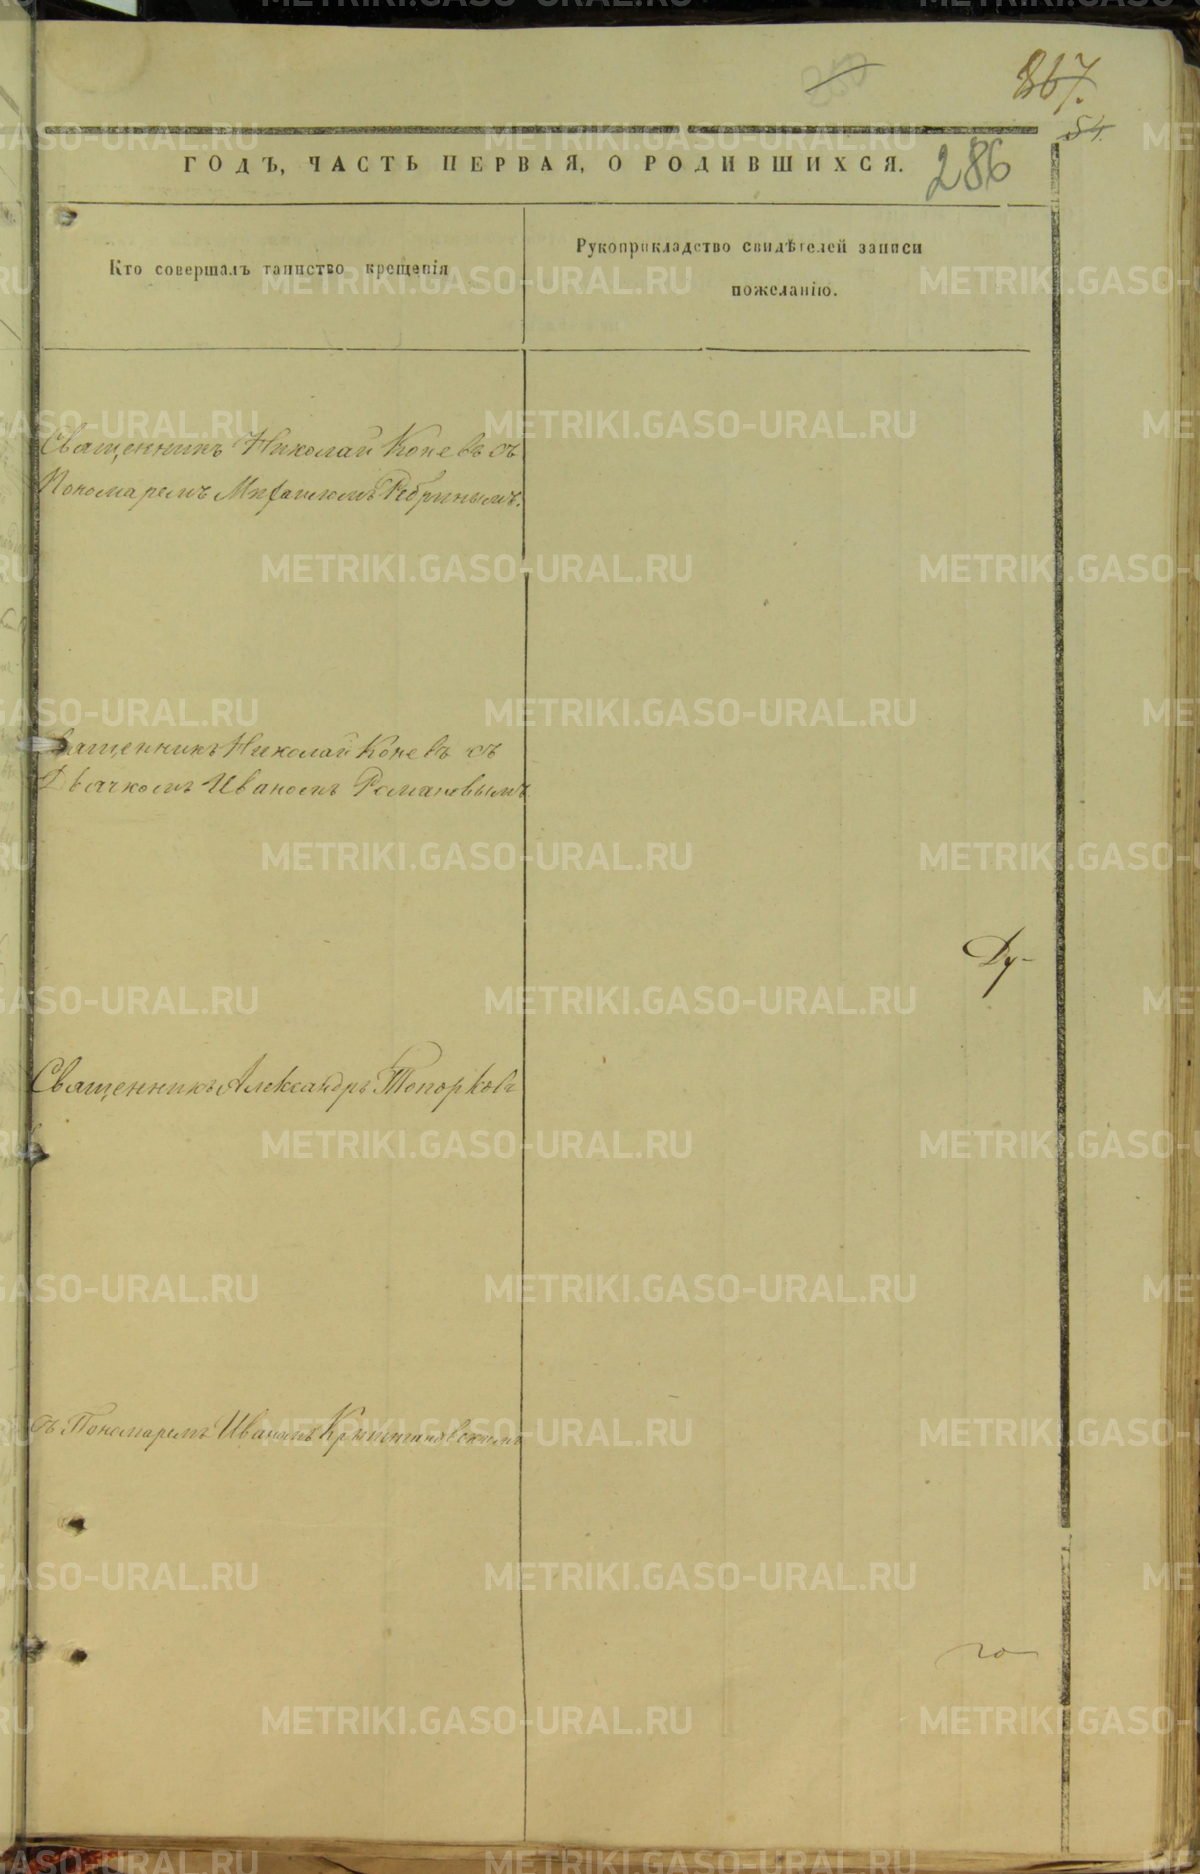 867.
54.
ГОДЪ, ЧАСТЬ ПЕРВАЯ, О РОДИВШИХСЯ.
286
Кто совершалъ таинство крещенія
Рукоприкладство свидѣтелей записи
пожеланію.
Священникъ Николай Коневъ съ
Пономаремъ Михаиломъ Ребринымъ.
Священникъ Николай Коневъ съ
Дьячкомъ Иваномъ Романовымъ
Ду-
Священникъ Александръ Топорковъ
съ Пономаремъ Иваномъ Крыжановскимъ
го
METRIKI.GASO-URAL.RU